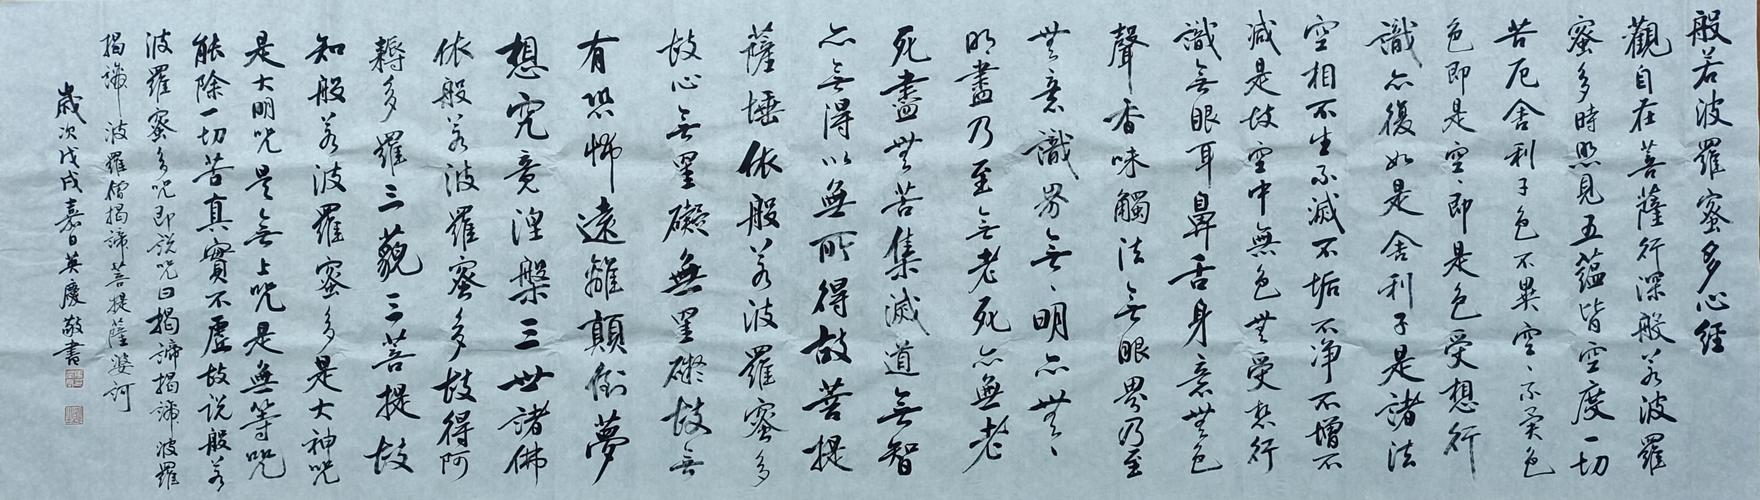 般若波羅蜜多心經
觀自在菩薩行深般若波羅
蜜多時照見五蘊皆空度一切
苦厄舍利子色不異空、不異色
色即是空、即是色受想行
識亦復如是舍利子是諸法
空相不生不滅不垢不净不增不
减是故空中無色無受想行
識無眼耳鼻舌身意無色
聲香味觸法無眼界乃至
無意識界無、明亦無、
明盡乃至無老死亦無老
死盡無苦集滅道無智
亦無得以無所得故菩提
薩埵依般若波羅蜜多
故心無罣礙無罣礙故無
有恐怖遠離顛倒夢
想究竟涅槃三世諸佛
依般若波羅蜜多故得阿
耨多羅三藐三菩提故
知般若波羅蜜多是大神咒
是大明咒是無上咒是無等咒
能除一切苦真實不虛故説般若
波羅蜜多咒即説咒曰揭諦揭諦波羅
揭諦波羅僧揭諦菩提薩婆訶
歲次戊戌嘉日英慶敬書